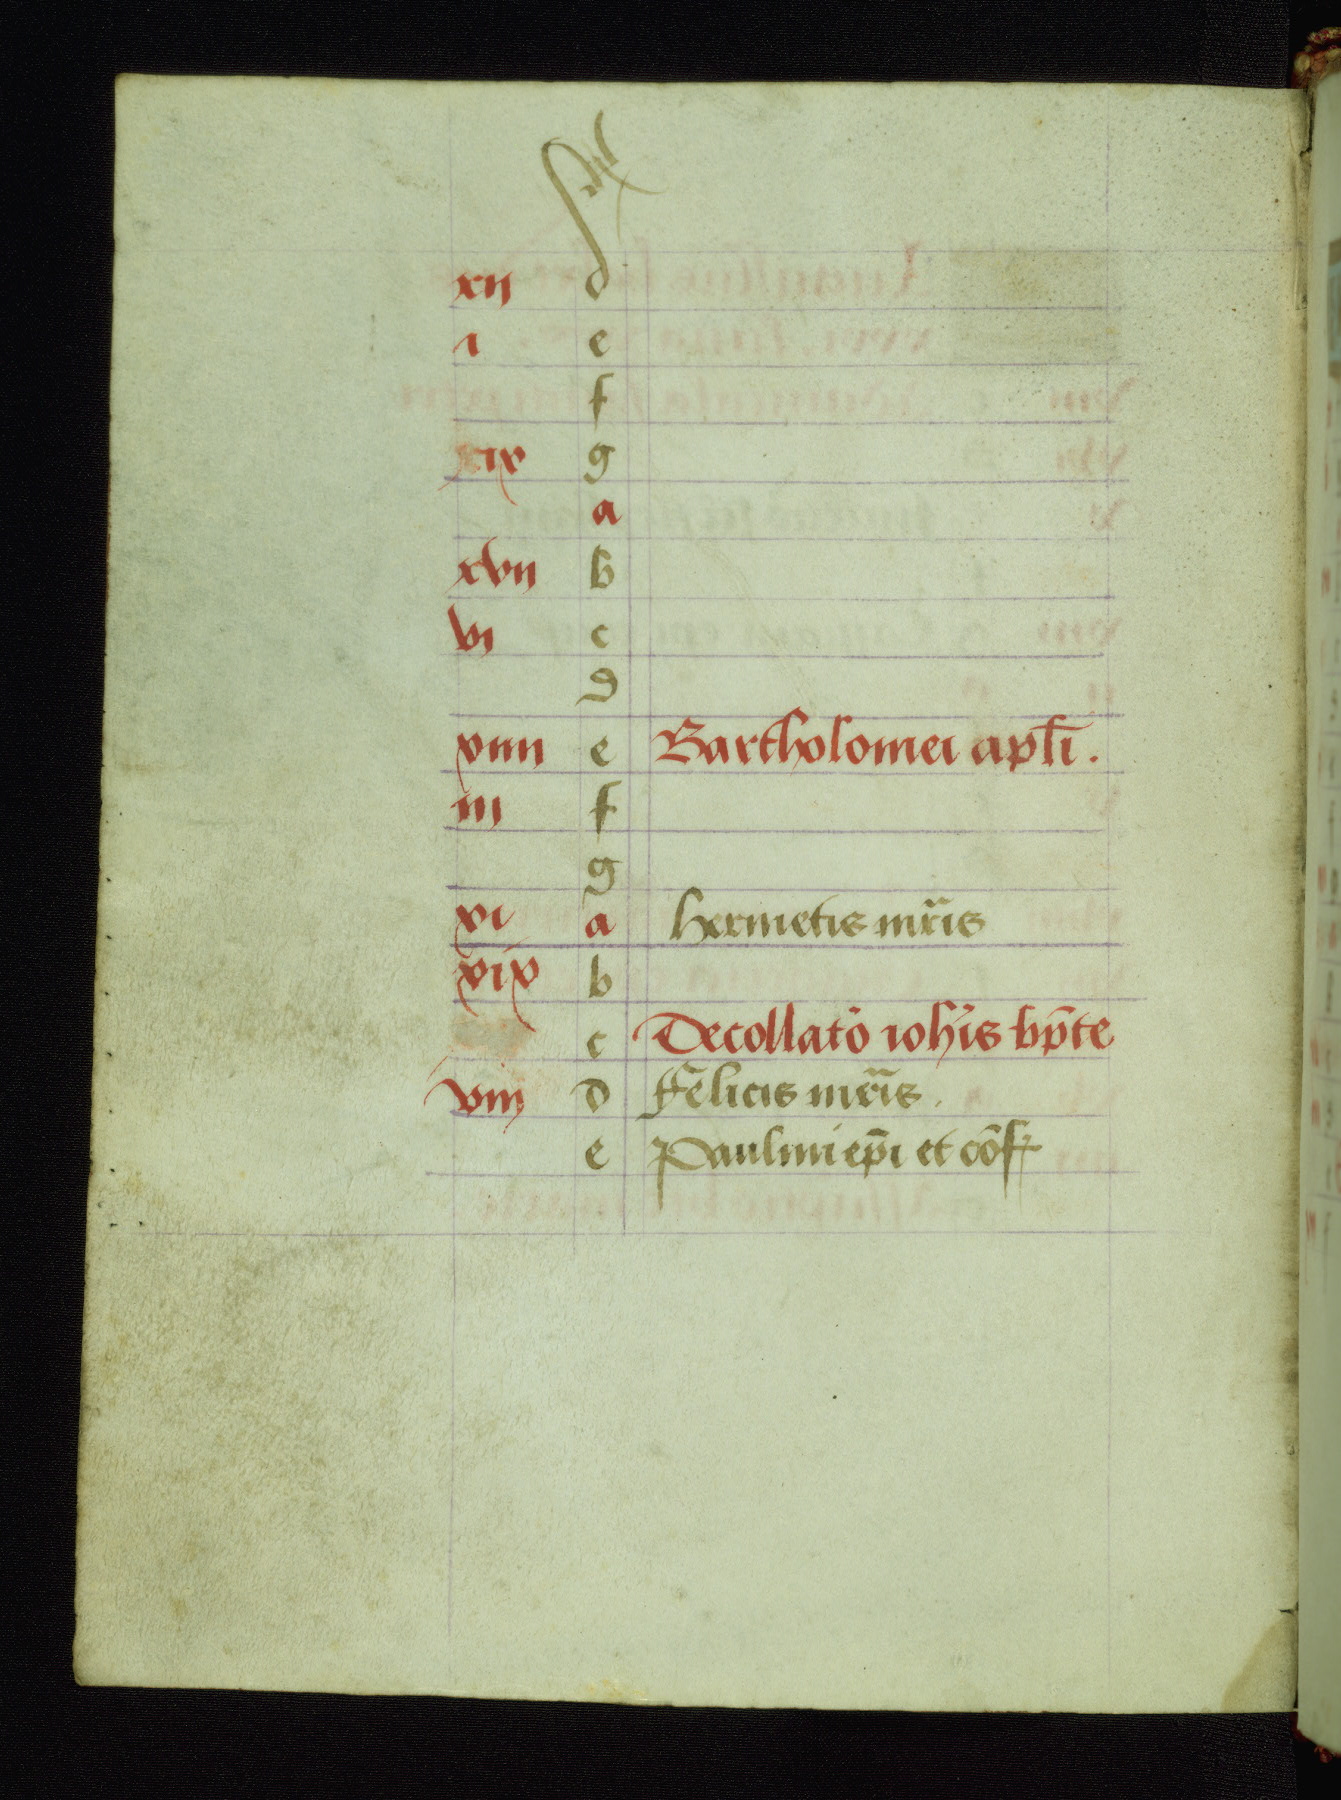 xij d
i e
f
xix g
a
xvij b
vi c
d
viiii e Bartholomei apl̅i .
iij f
g
xi a hermetis mr̅is
xix b
c Decollato̅ ioh̅is bp̅te
viij d Felicis mr̅is .
e Paulini ep̅i et co̅f